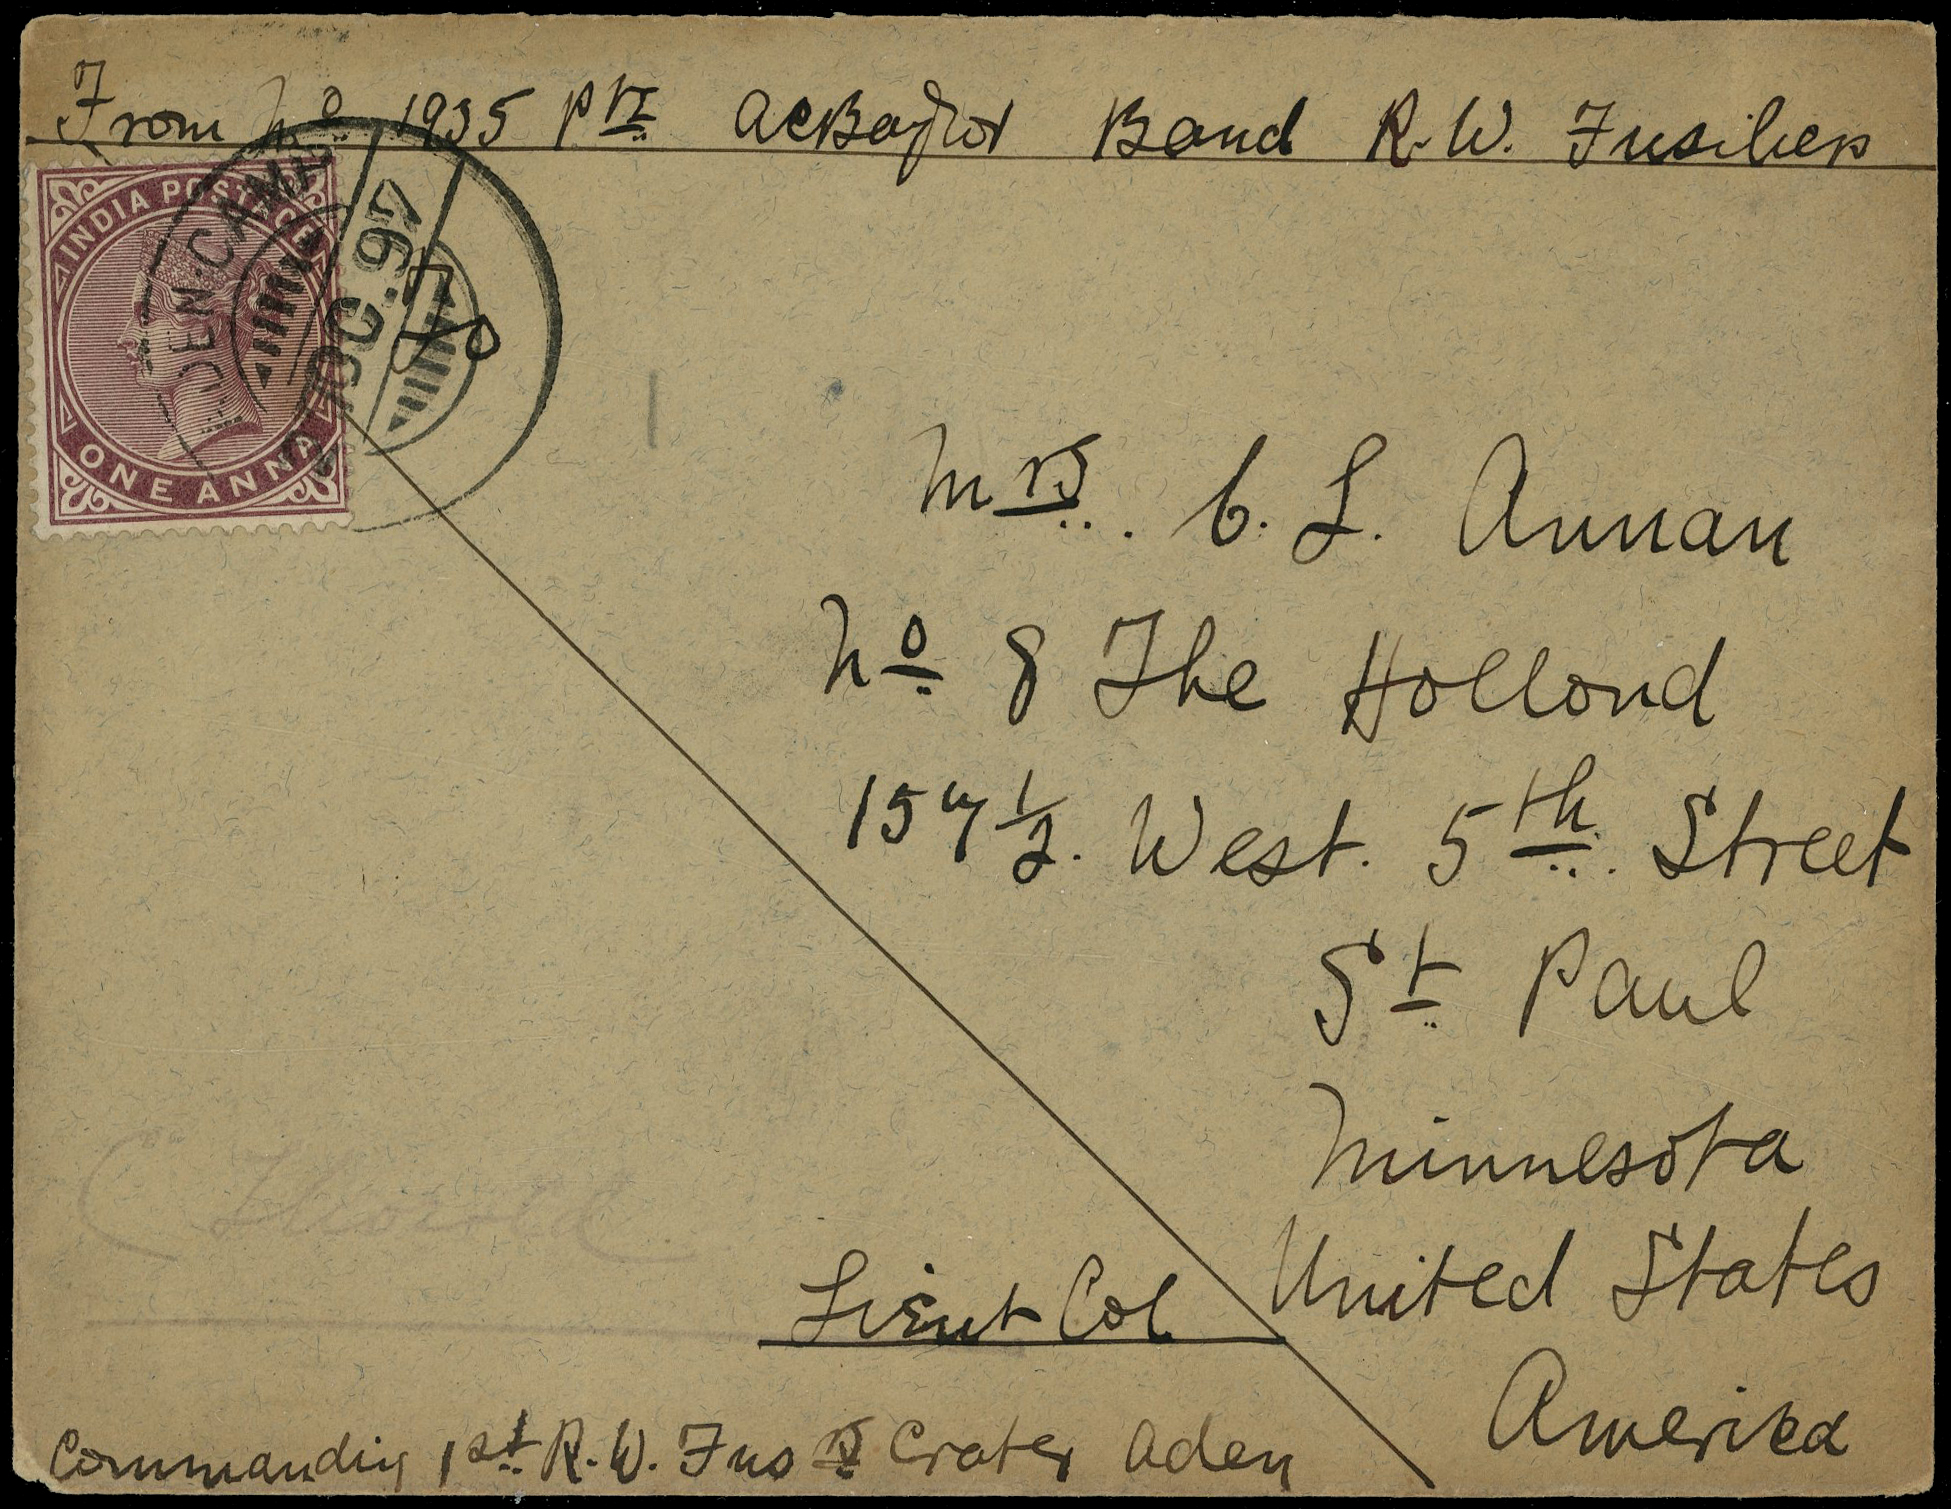 From No 1935 Pte Band R.W. Fusiliers
INDIA POSTAGE
ONE ANNA
DEN.CAM
OC.97
Mrs. C. L. Annan
No 8 The Holland
157½. West. 5th. Street
St Paul
Minnesota
United States
America
Lieut Col
Commanding 1st R.W. Fusrs Crater Aden